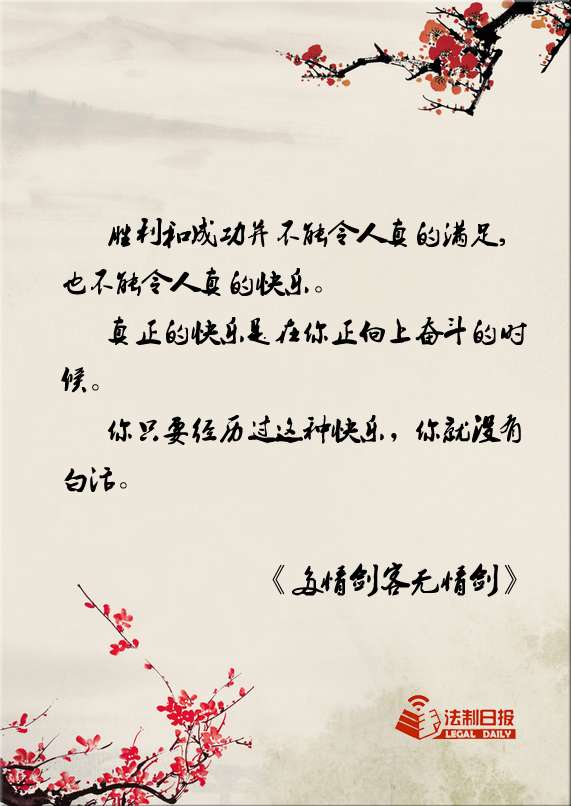 胜利和成功并不能令人真的满足，
也不能令人真的快乐。
真正的快乐是在你正向上奋斗的时
候。
你只要经历过这种快乐，你就没有
白活。
《多情剑客无情剑》
法制日报
LEGAL DAILY